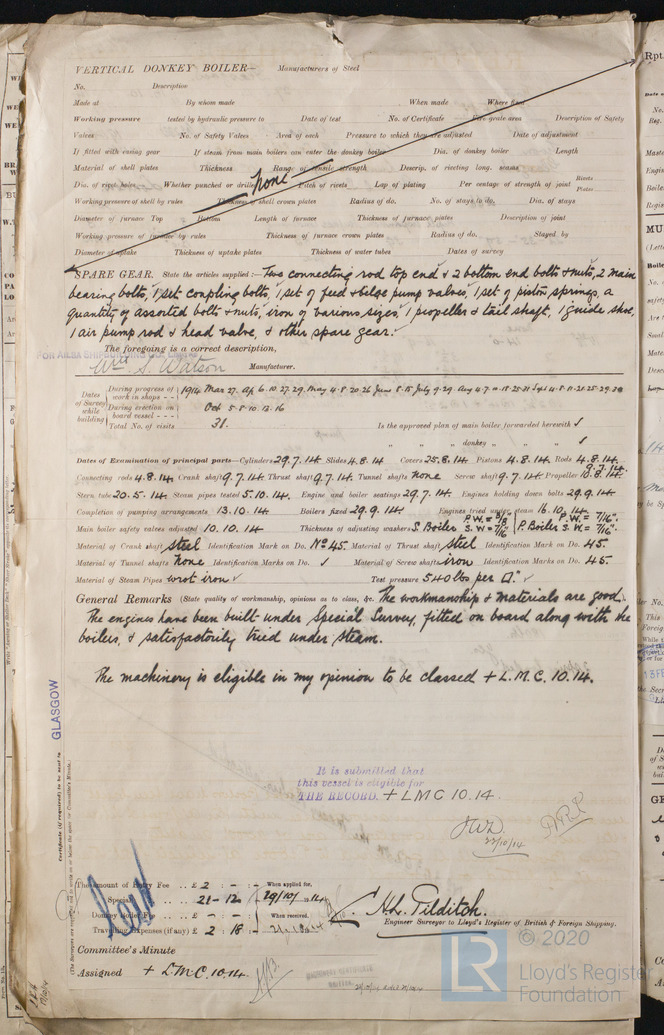 VERTICAL DONKEY BOILER— Manufacturers of Steel
No. Description
Made at By whom made When made Where fixed
Working pressure tested by hydraulic pressure to Date of test No. of Certificate Fire grate area Description of Safety
Valves No. of Safety Valves Area of each Pressure to which they are adjusted Date of adjustment
If fitted with easing gear If steam from main boilers can enter the donkey boiler Dia. of donkey boiler Length
Material of shell plates Thickness Range of tensile strength Descrip. of riveting long. seams
None
Dia. of rivet holes Whether punched or drilled Pitch of rivets Lap of plating Per centage of strength of joint Rivets Plates
Working pressure of shell by rules Thickness of shell crown plates Radius of do. No. of stays to do. Dia. of stays
Diameter of furnace Top Bottom Length of furnace Thickness of furnace plates Description of joint
Working pressure of furnace by rules Thickness of furnace crown plates Radius of do. Stayed by
Diameter of uptake Thickness of uptake plates Thickness of water tubes Dates of survey
SPARE GEAR. State the articles supplied:— Two connecting rod top end & 2 bottom end bolts & nuts, 2 main
bearing bolts, 1 set coupling bolts, 1 set of feed & bilge pump valves, 1 set of piston springs, a
quantity of assorted bolts & nuts, iron of various sizes, 1 propeller & tail shaft, 1 guide shoe,
1 air pump rod & head valve, & other spare gear.
The foregoing is a correct description,
FOR AILSA SHIPBUILDING CO.
Wm S. Watson Manufacturer.
Dates of Survey while building
During progress of work in shops - - 1914 Mar 27. Ap 6.10.27.29. May 4.8.20.26 June 8.15 July 9.29. Aug 4.7.10.18.25.31 Sept 4.8.11.21.25.29.30
During erection on board vessel - - - Oct 5.8.10.13.16
Total No. of visits 31. Is the approved plan of main boiler forwarded herewith ✓
" " " donkey " " " ✓
Dates of Examination of principal parts—Cylinders 29.7.14 Slides 4.8.14 Covers 25.8.14 Pistons 4.8.14. Rods 4.8.14.
Connecting rods 4.8.14 Crank shaft 9.7.14 Thrust shaft 9.7.14 Tunnel shafts None Screw shaft 9.7.14 Propeller 9.7.14.
Stern tube 20.5.14 Steam pipes tested 5.10.14. Engine and boiler seatings 29.7.14 Engines holding down bolts 29.9.14
Completion of pumping arrangements 13.10.14 Boilers fixed 29.9.14 Engines tried under steam 16.10.14
Main boiler safety valves adjusted 10.10.14 Thickness of adjusting washers S. Boiler P.W.= 3/8 S.W.= 7/16 P. Boiler P.W.= 7/16". S.W.= 7/16".
Material of Crank shaft Steel Identification Mark on Do. No 45. Material of Thrust shaft Steel Identification Mark on Do. 45.
Material of Tunnel shafts None Identification Marks on Do. ✓ Material of Screw shafts iron Identification Marks on Do. 45.
Material of Steam Pipes wrot iron ✓ Test pressure 540 lbs per □." ✓
General Remarks (State quality of workmanship, opinions as to class, &c. The workmanship & materials are good.
The engines have been built under Special Survey, fitted on board along with the
boilers, & satisfactorily tried under steam.
The machinery is eligible in my opinion to be classed + L.M.C. 10.14.
GLASGOW
Certificate (if required) to be sent to
(The Surveyors are requested not to write on or below the space for Committee's Minute.)
It is submitted that
this vessel is eligible for
THE RECORD. + LMC 10.14.
JWD
22/10/14
The amount of Entry Fee .. £ 2 : - : - When applied for,
Special .. .. £ 21 - 12 : 29/10/1914
Donkey Boiler Fee .. .. £ - : - : - When received,
Travelling Expenses (if any) £ 2 : 18 : -
H.L. Pilditch.
Engineer Surveyor to Lloyd's Register of British & Foreign Shipping.
Committee's Minute
Assigned + L.M.C. 10.14.
© 2020
LR
Lloyd's Register
Foundation